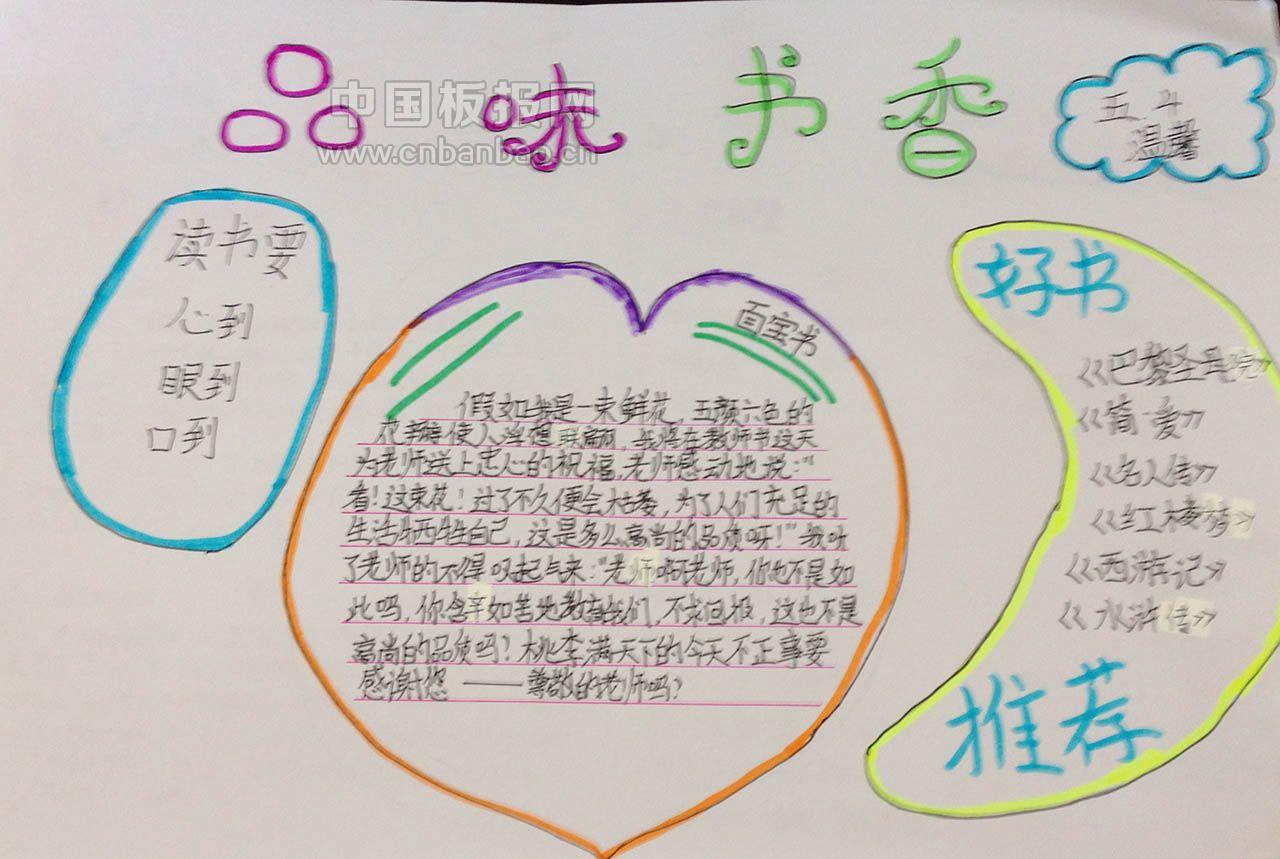 品味书香
中国板报网
www.cnbanbao.cn
五.4
温馨
读书要
心到
眼到
口到
百宝书
假如我是一束鲜花，五颜六色的
花瓣使人浮想联翩，我将在教师节这天
为老师送上忠心的祝福，老师感动地说：“
看！这束花！过了不久便会枯萎，为了人们充足的
生活牺牲自己，这是多么高尚的品质呀！”我听
了老师的不得叹起气来：“老师啊老师，你也不是如
此吗，你含辛如苦地教育我们，不求回报，这也不是
高尚的品质吗？桃李满天下的今天不正事要
感谢您——尊敬的老师吗？
好书
《巴黎圣母院》
《简·爱》
《名人传》
《红楼梦》
《西游记》
《水浒传》
推荐